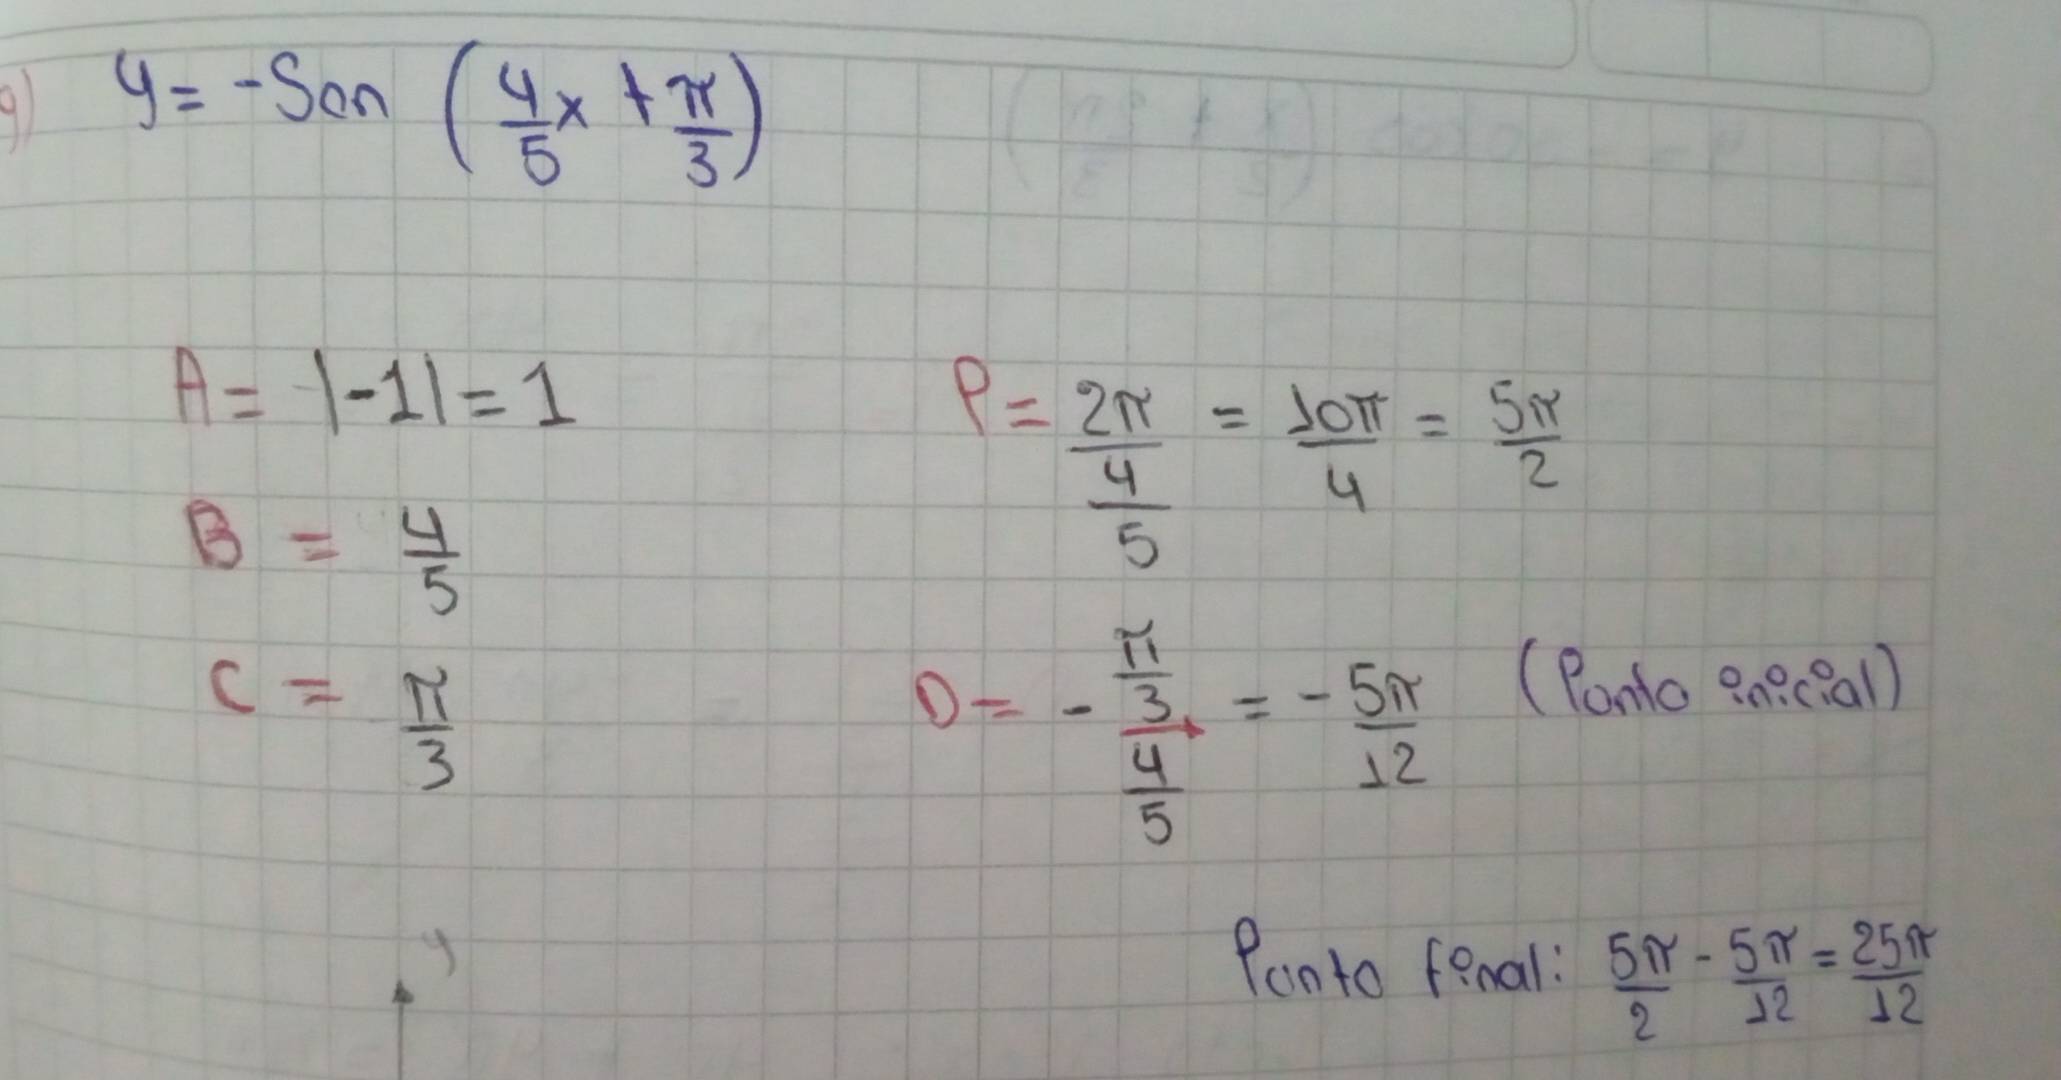 g) y = -Sen (4/5 x + π/3)
A = |-1| = 1
P = 2π/(4/5) = 10π/4 = 5π/2
B = 4/5
C = π/3
D = - (π/3)/(4/5) = - 5π/12 (Punto inicial)
Punto final: 5π/2 - 5π/12 = 25π/12
y